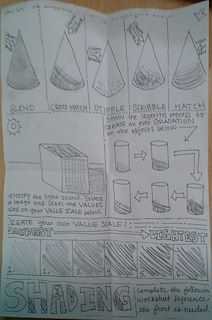 BLEND
CROSS HATCH
STIPPLE
SCRIBBLE
HATCH
SHOW the layering process to
CREATE an even GRADATION
on the objects below
IDENTIFY the light source. SHADE
image and label the VALUES
on your VALUE SCALE below.
CREATE YOUR OWN VALUE SCALE!
DARKEST
LIGHTEST
1.
2.
3.
4.
5.
6.
SHADING
Complete the following
worksheet. Reference
the front as needed.